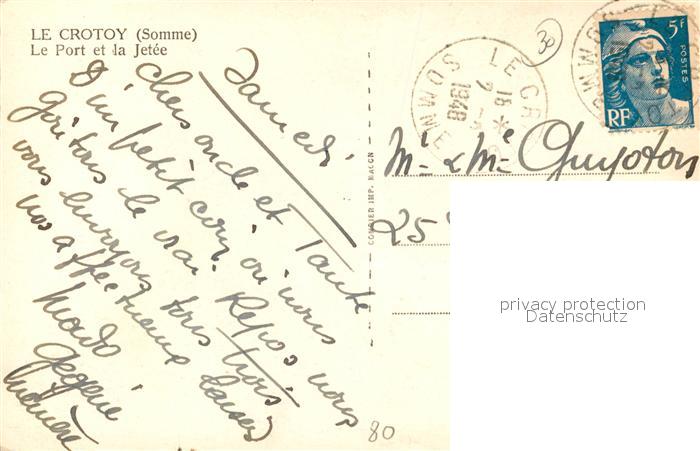 LE CROTOY (Somme)
Le Port et la Jetée
Samedi
chers oncle et Tante
D'un petit coin où nous
goûtons le vrai Repos nous
vous envoyons tous trois
nos affectueux baisers
Mado
Gégène
COMBIER IMP. MACON
80
30
LE CR
SOMME
18 *
7 - 8
1948
SOMME
5F
POSTES
RF
Mr & Me Guyoton
25
privacy protection
Datenschutz